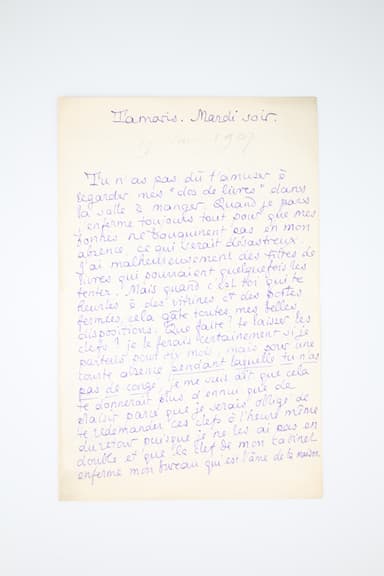 Tamaris. Mardi soir.
1907
Tu n'as pas dû t'amuser à
regarder mes "dos de livres" dans
la salle à manger. Quand je pars
j'enferme toujours tout pour que mes
bonnes ne bouquinent pas en mon
absence, ce qui serait désastreux.
J'ai malheureusement des titres de
livres qui pourraient quelquefois les
tenter. Mais quand c'est toi qui te
heurtes à des vitrines et des portes
fermées, cela gâte toutes mes belles
dispositions. Que faire? te laisser les
clefs? je le ferais certainement si je
partais pour six mois, mais pour une
courte absence pendant laquelle tu n'as
pas de congé, je me suis dit que cela
te donnerait plus d'ennui que de
plaisir parce que je serais obligé de
te redemander ces clefs à l'heure même
du retour puisque je ne les ai pas en
double et que la clef de mon cabinet
enferme mon bureau qui est l'âme de la maison